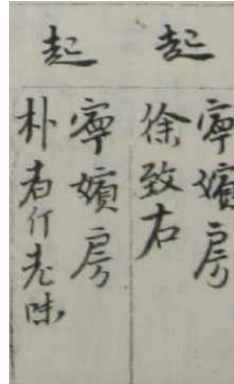 起
寧嬪房
徐致右
起
寧嬪房
朴者斤老味